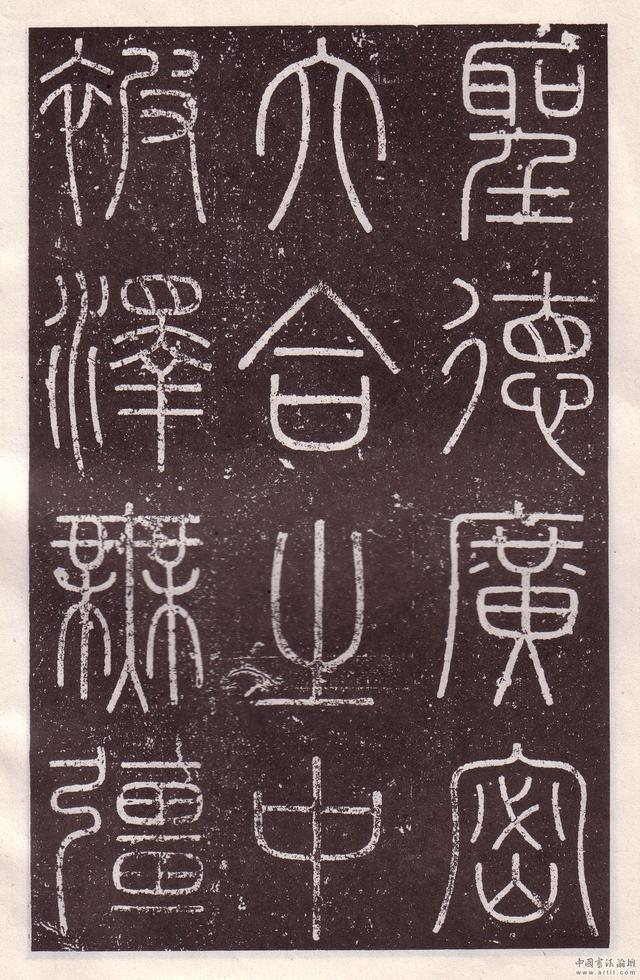 聖德廣密
六合之中
被澤無疆
中國書法論壇
www.artit.com